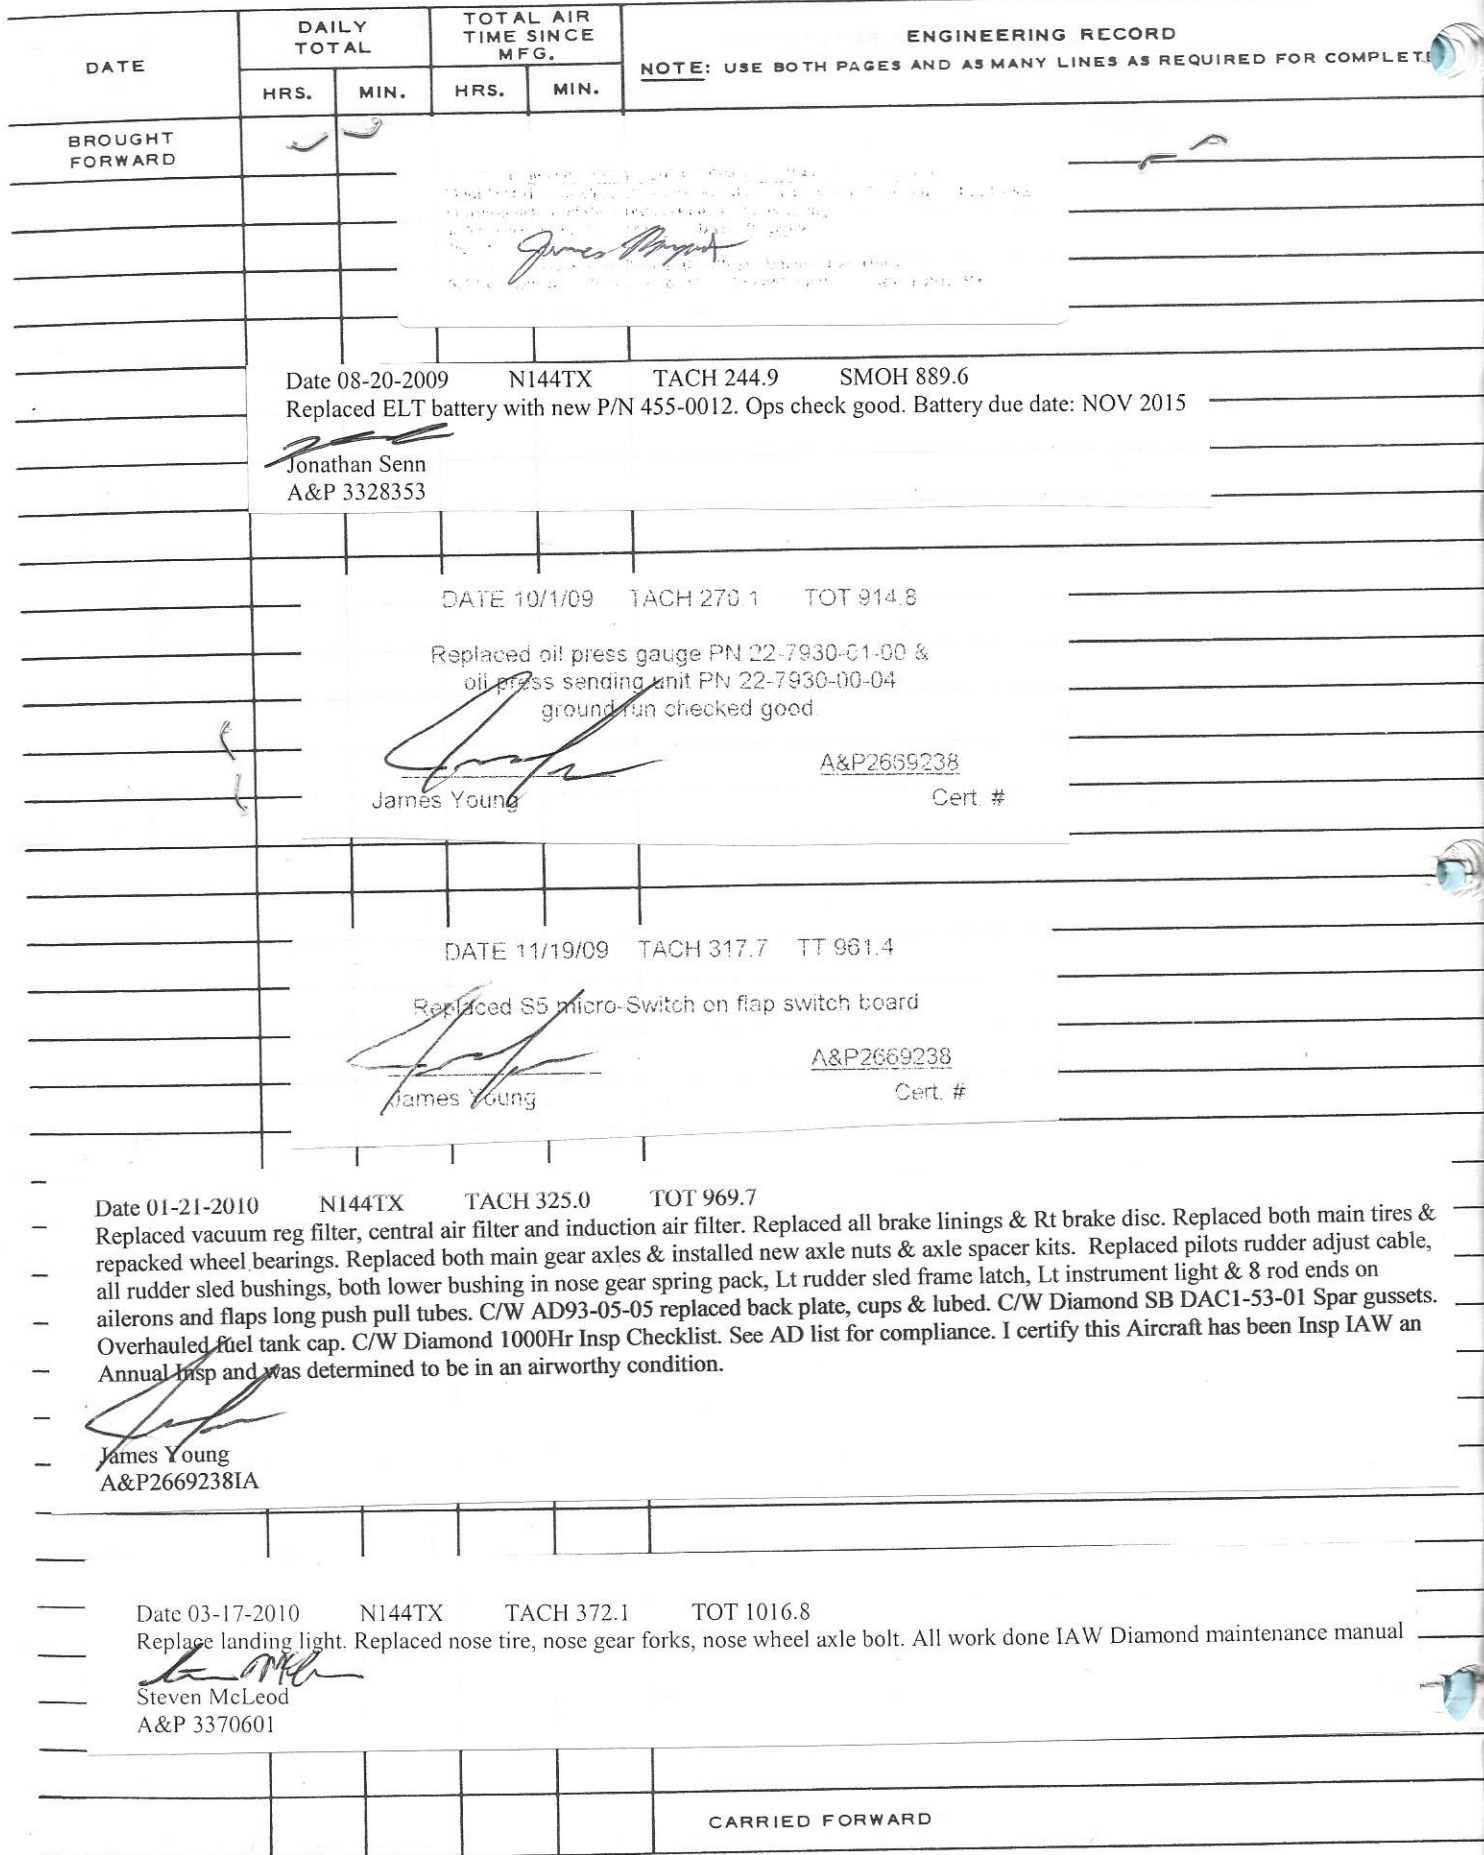 DATE
DAILY TOTAL
TOTAL AIR TIME SINCE MFG.
ENGINEERING RECORD
NOTE: USE BOTH PAGES AND AS MANY LINES AS REQUIRED FOR COMPLETE
HRS. MIN. HRS. MIN.
BROUGHT FORWARD
Date 08-20-2009 N144TX TACH 244.9 SMOH 889.6
Replaced ELT battery with new P/N 455-0012. Ops check good. Battery due date: NOV 2015
Jonathan Senn
A&P 3328353
DATE 10/1/09 TACH 270.1 TOT 914.8
Replaced oil press gauge PN 22-7930-01-00 &
oil press sending unit PN 22-7930-00-04
ground run checked good.
A&P2669238
James Young Cert. #
DATE 11/19/09 TACH 317.7 TT 961.4
Replaced S5 micro-Switch on flap switch board
A&P2669238
James Young Cert. #
Date 01-21-2010 N144TX TACH 325.0 TOT 969.7
Replaced vacuum reg filter, central air filter and induction air filter. Replaced all brake linings & Rt brake disc. Replaced both main tires &
repacked wheel bearings. Replaced both main gear axles & installed new axle nuts & axle spacer kits. Replaced pilots rudder adjust cable,
all rudder sled bushings, both lower bushing in nose gear spring pack, Lt rudder sled frame latch, Lt instrument light & 8 rod ends on
ailerons and flaps long push pull tubes. C/W AD93-05-05 replaced back plate, cups & lubed. C/W Diamond SB DAC1-53-01 Spar gussets.
Overhauled fuel tank cap. C/W Diamond 1000Hr Insp Checklist. See AD list for compliance. I certify this Aircraft has been Insp IAW an
Annual Insp and was determined to be in an airworthy condition.
James Young
A&P2669238IA
Date 03-17-2010 N144TX TACH 372.1 TOT 1016.8
Replace landing light. Replaced nose tire, nose gear forks, nose wheel axle bolt. All work done IAW Diamond maintenance manual
Steven McLeod
A&P 3370601
CARRIED FORWARD